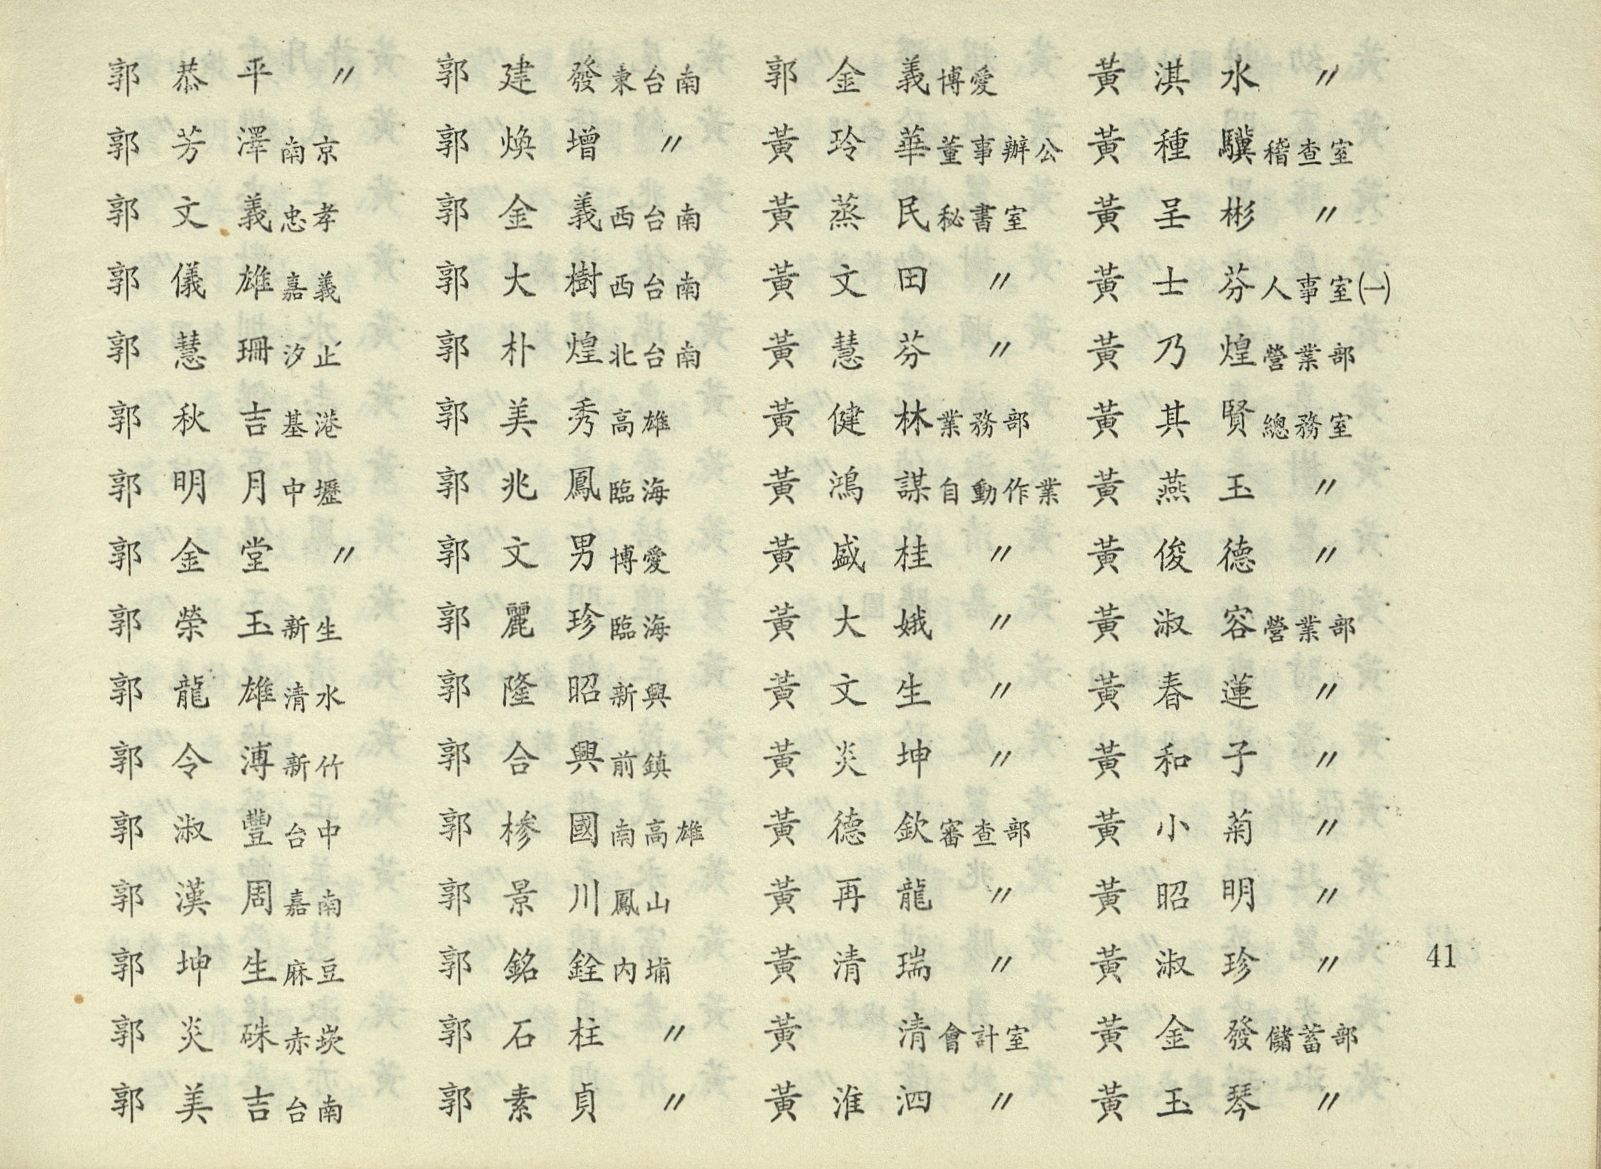 郭恭平 〃
郭芳澤 南京
郭文義 忠孝
郭儀雄 嘉義
郭慧珊 汐止
郭秋吉 基港
郭明月 中壢
郭金堂 〃
郭榮玉 新生
郭龍雄 清水
郭令溥 新竹
郭淑豐 台中
郭漢周 嘉南
郭坤生 麻豆
郭炎硃 赤崁
郭美吉 台南
郭建發 東台南
郭煥增 〃
郭金義 西台南
郭大樹 西台南
郭朴煌 北台南
郭美秀 高雄
郭兆鳳 臨海
郭文男 博愛
郭麗珍 臨海
郭隆昭 新興
郭合興 前鎮
郭椮國 南高雄
郭景川 鳳山
郭銘銓 內埔
郭石柱 〃
郭素貞 〃
郭金義 博愛
黃玲華 董事辦公
黃蒸民 秘書室
黃文田 〃
黃慧芬 〃
黃健林 業務部
黃鴻謀 自動作業
黃盛桂 〃
黃大娥 〃
黃文生 〃
黃炎坤 〃
黃德欽 審查部
黃再龍 〃
黃清瑞 〃
黃清 會計室
黃淮泗 〃
黃淇水 〃
黃種驥 稽查室
黃呈彬 〃
黃士芬 人事室㈠
黃乃煌 營業部
黃其賢 總務室
黃燕玉 〃
黃俊德 〃
黃淑容 營業部
黃春蓮 〃
黃和子 〃
黃小菊 〃
黃昭明 〃
黃淑珍 〃
黃金發 儲蓄部
黃玉琴 〃
41